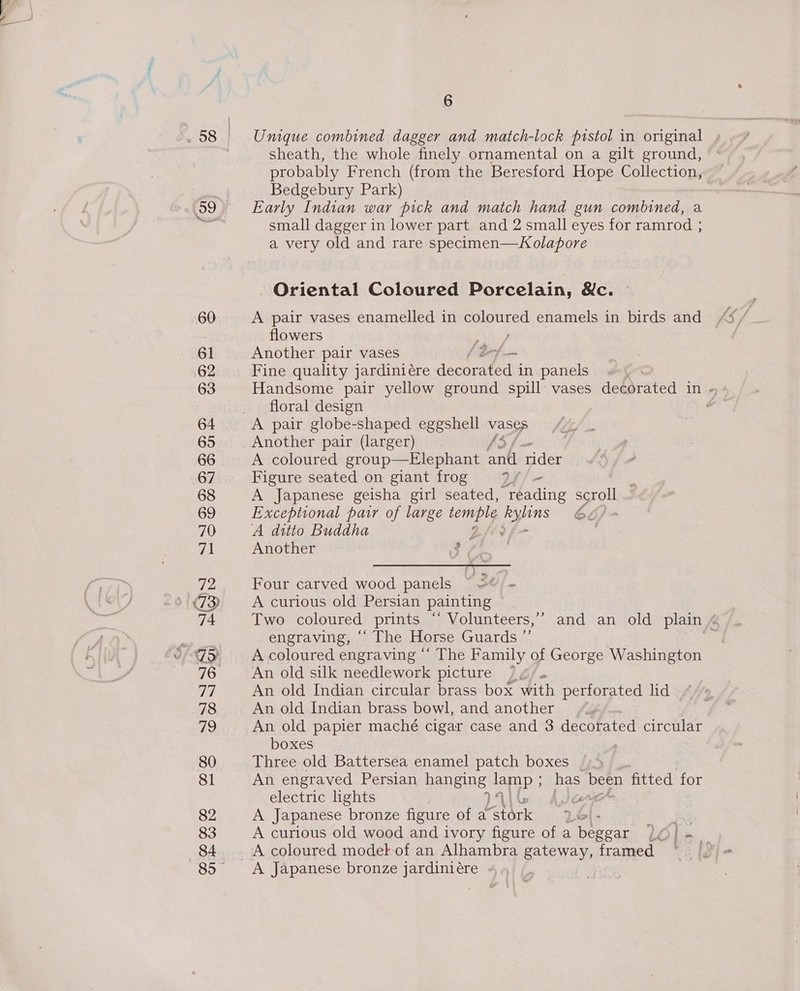 6
58 Unique combined dagger and match-lock pistol in original
sheath, the whole finely ornamental on a gilt ground,
probably French (from the Beresford Hope Collection,
Bedgebury Park)
59 Early Indian war pick and match hand gun combined, a
small dagger in lower part and 2 small eyes for ramrod ;
a very old and rare specimen—Kolapore
Oriental Coloured Porcelain, &c.
60 A pair vases enamelled in coloured enamels in birds and
flowers
61 Another pair vases
62 Fine quality jardiniére decorated in panels
63 Handsome pair yellow ground spill vases decorated in
floral design
64 A pair globe-shaped eggshell vases
65 Another pair (larger) 15/-
66 A coloured group—Elephant and rider
67 Figure seated on giant frog
68 A Japanese geisha girl seated, reading scroll
69 Exceptional pair of large temple kylins
70 A ditto Buddha
71 Another
72 Four carved wood panels
73 A curious old Persian painting
74 Two coloured prints “ Volunteers,” and an old plain
engraving, “ The Horse Guards ”
75 A coloured engraving “ The Family of George Washington
76 An old silk needlework picture
77 An old Indian circular brass box with perforated lid
78 An old Indian brass bowl, and another
79 An old papier maché cigar case and 3 decorated circular
boxes
80 Three old Battersea enamel patch boxes
81 An engraved Persian hanging lamp ; has been fitted for
electric lights
82 A Japanese bronze figure of a stork
83 A curious old wood and ivory figure of a beggar
84 A coloured model of an Alhambra gateway, framed
85 A Japanese bronze jardiniére